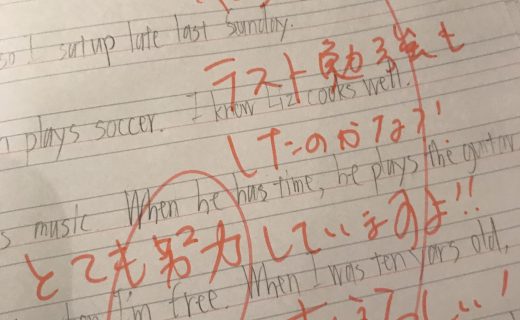 so I sat up late last Sunday.
テスト勉強も
plays soccer. I know Liz cooks well.
したのかな?!
s music When he has time, he plays the guitar
とても努力していますよ!!
I'm free. When I was ten years old,